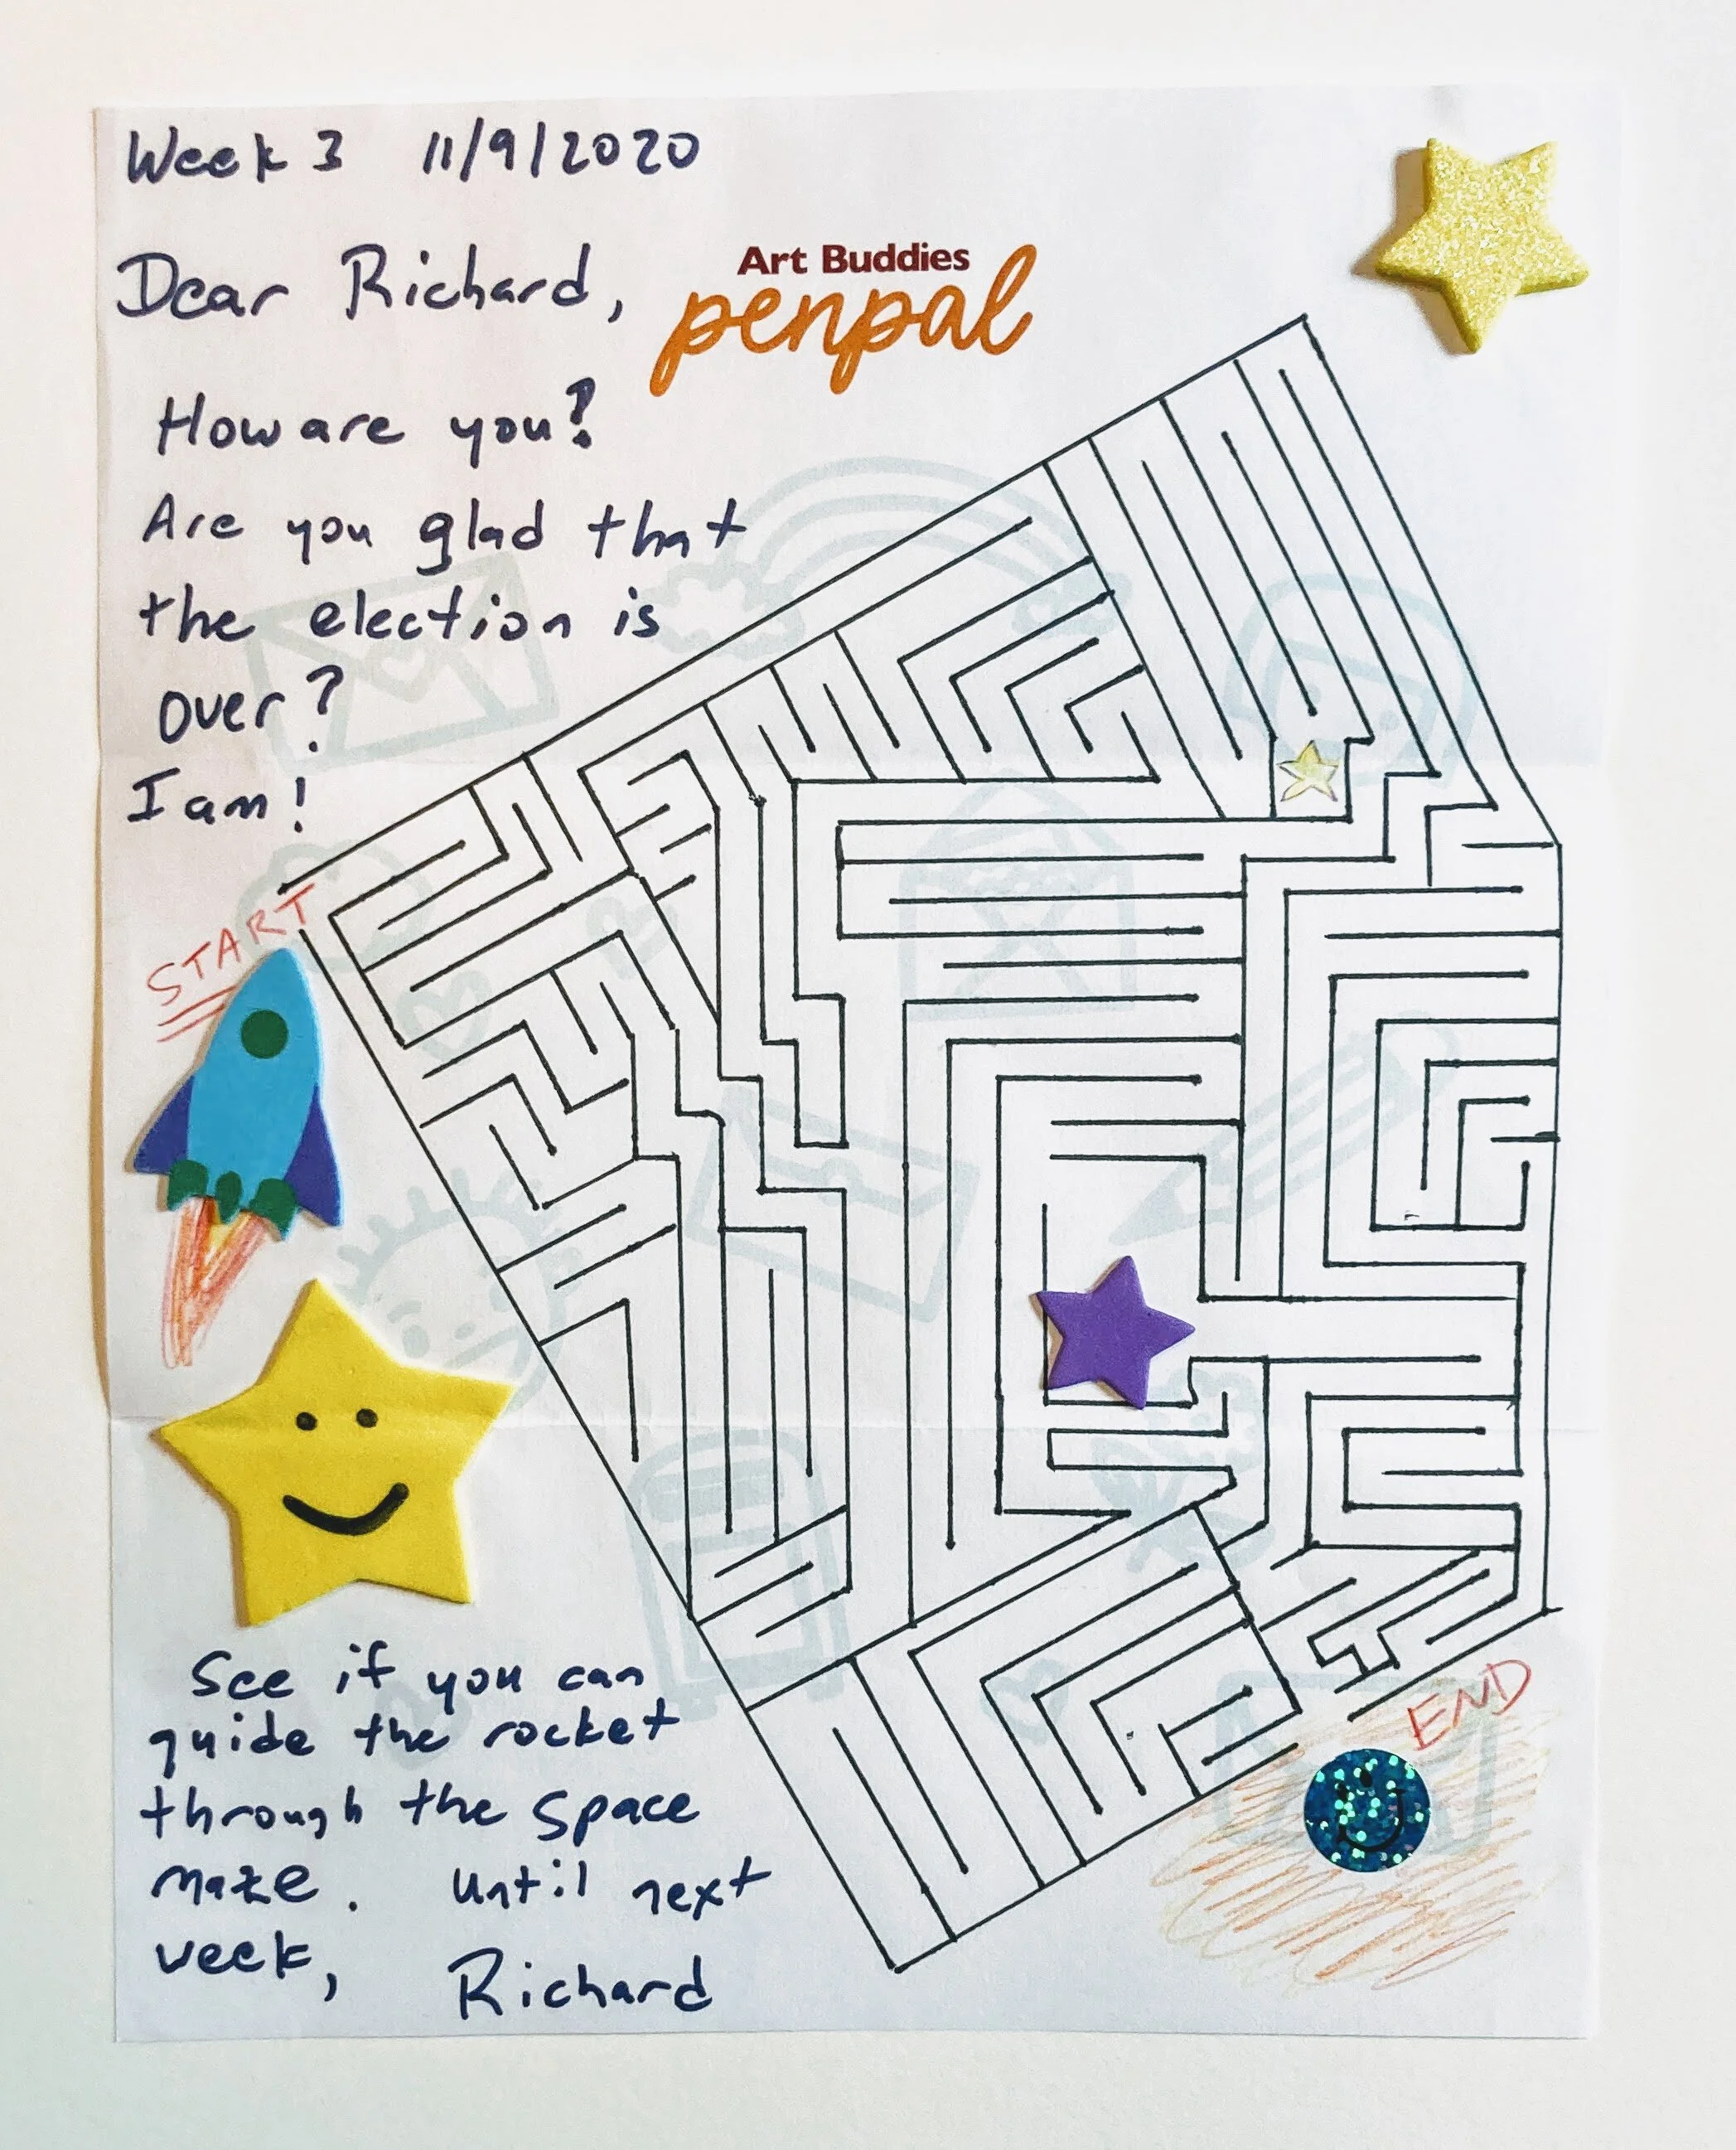 Week 3 11/9/2020
Dear Richard,
Art Buddies
penpal
How are you?
Are you glad that
the election is
over?
I am!
START
See if you can
guide the rocket
through the space
maze. Until next
week, Richard
END